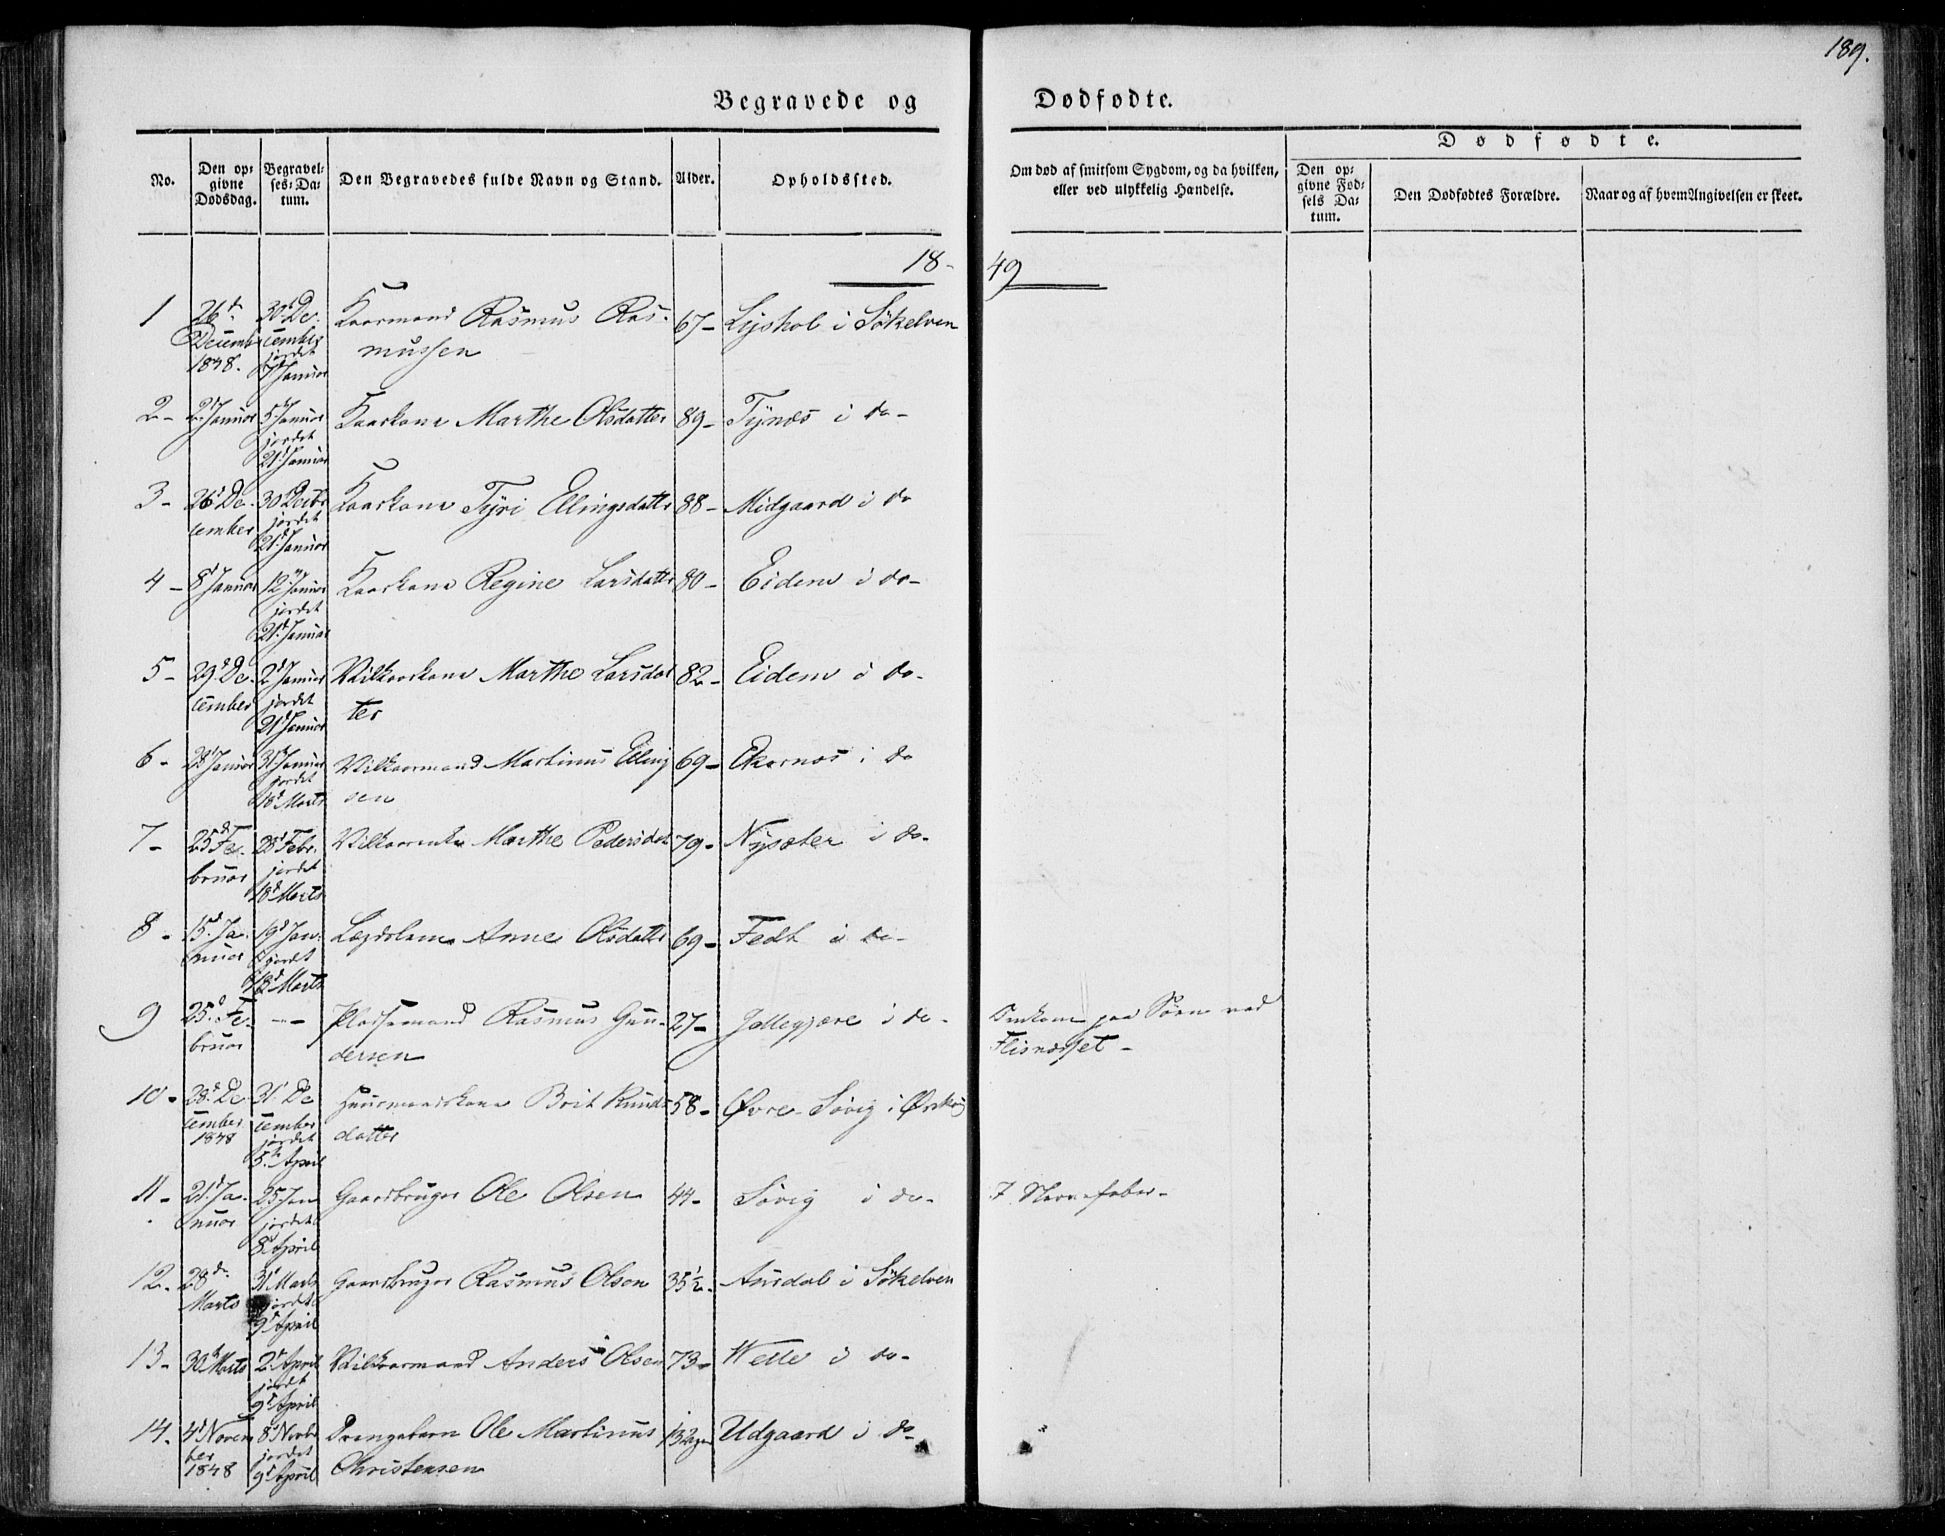 189.
Begravede og Dødfødte.
No.
Den op-
givne
Dødsdag.
Begravel-
ses-Da-
tum.
Den Begravedes fulde Navn og Stand.
Alder.
Opholdssted.
Om død af smitsom Sygdom, og da hvilken,
eller ved ulykkelig Hændelse.
Dødfødte.
Den op-
givne Fød-
sels Da-
tum.
Den Dødfødtes Forældre.
Naar og af hvem Angivelsen er skeet.
18-49
1 26d December 1848. 30d December jordet 7 Januar Kaarmand Rasmus Ras-
mussen 67- Lyshol i Søkelven
2- 2d Januar 5d Januar jordet 21d Januar Kaarkone Marthe Olsdatter 89- Tynæs i do-
3- 26d December 30d Decbr jordet 21d Januar Kaarkone Tyri Ellingsdatter 88- Midgaard i do
4- 8d Januar 12 Januar jordet 21d Januar Kaarkone Regine Larsdatter 80- Eidem i do-
5- 29d December 2d Januar jordet 21d Januar Vilkaarkone Marthe Larsdat
ter 82- Eidem i do-
6- 28d Januar 31d Januar jordet 18d Marts Vilkaarmand Martinus Elling
sen 69- Ekornæs i do
7- 25d Februar 28d Febr. jordet 18d Marts Marthe Pedersdat 79- Nysæter i do-
8- 15d Januar 19d Jan. jordet 18d Marts Lægdslem Anne Olsdatter 69- Fedt i do-
9 25d Februar -- Pladsemand Rasmus Gun-
dersen 27- i do- Omkom paa Søen ved
Flisnæsset-
10- 28d December 1848 31d December jordet 5te April Huusmandskone Brit Knuds
datter 58- Øvre-Søvig i Ørskog
11- 21d Januar 25 Jan jordet 8d April Gaardbruger Ole Olsen 44- Søvig i do-
12- 28d Marts 31d Marts jordet 9d April Gaardbruger Rasmus Olsen 35½- Aursdal i Søkelven
13- 30d Marts 2d April jordet 9d April Vilkaarmand Anders Olsen 73- Welle i do-
14- 4d November 1848 8d Novbr jordet 9d April Drengebarn Ole Martinus
Christensen 13 Dage Udgaard i do-